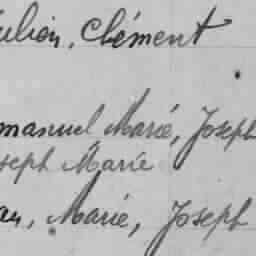 ulien, Clément
manuel Marié, Joseph
seph Marie
an, Marie, Joseph